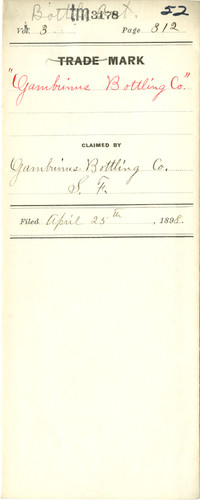 Bottle Act. 52
tm3178
Vol. 3 Page 312
TRADE MARK
"Gambrinus Bottling Co."
CLAIMED BY
Gambrinus Bottling Co.
S. F.
Filed April 25th, 1898.